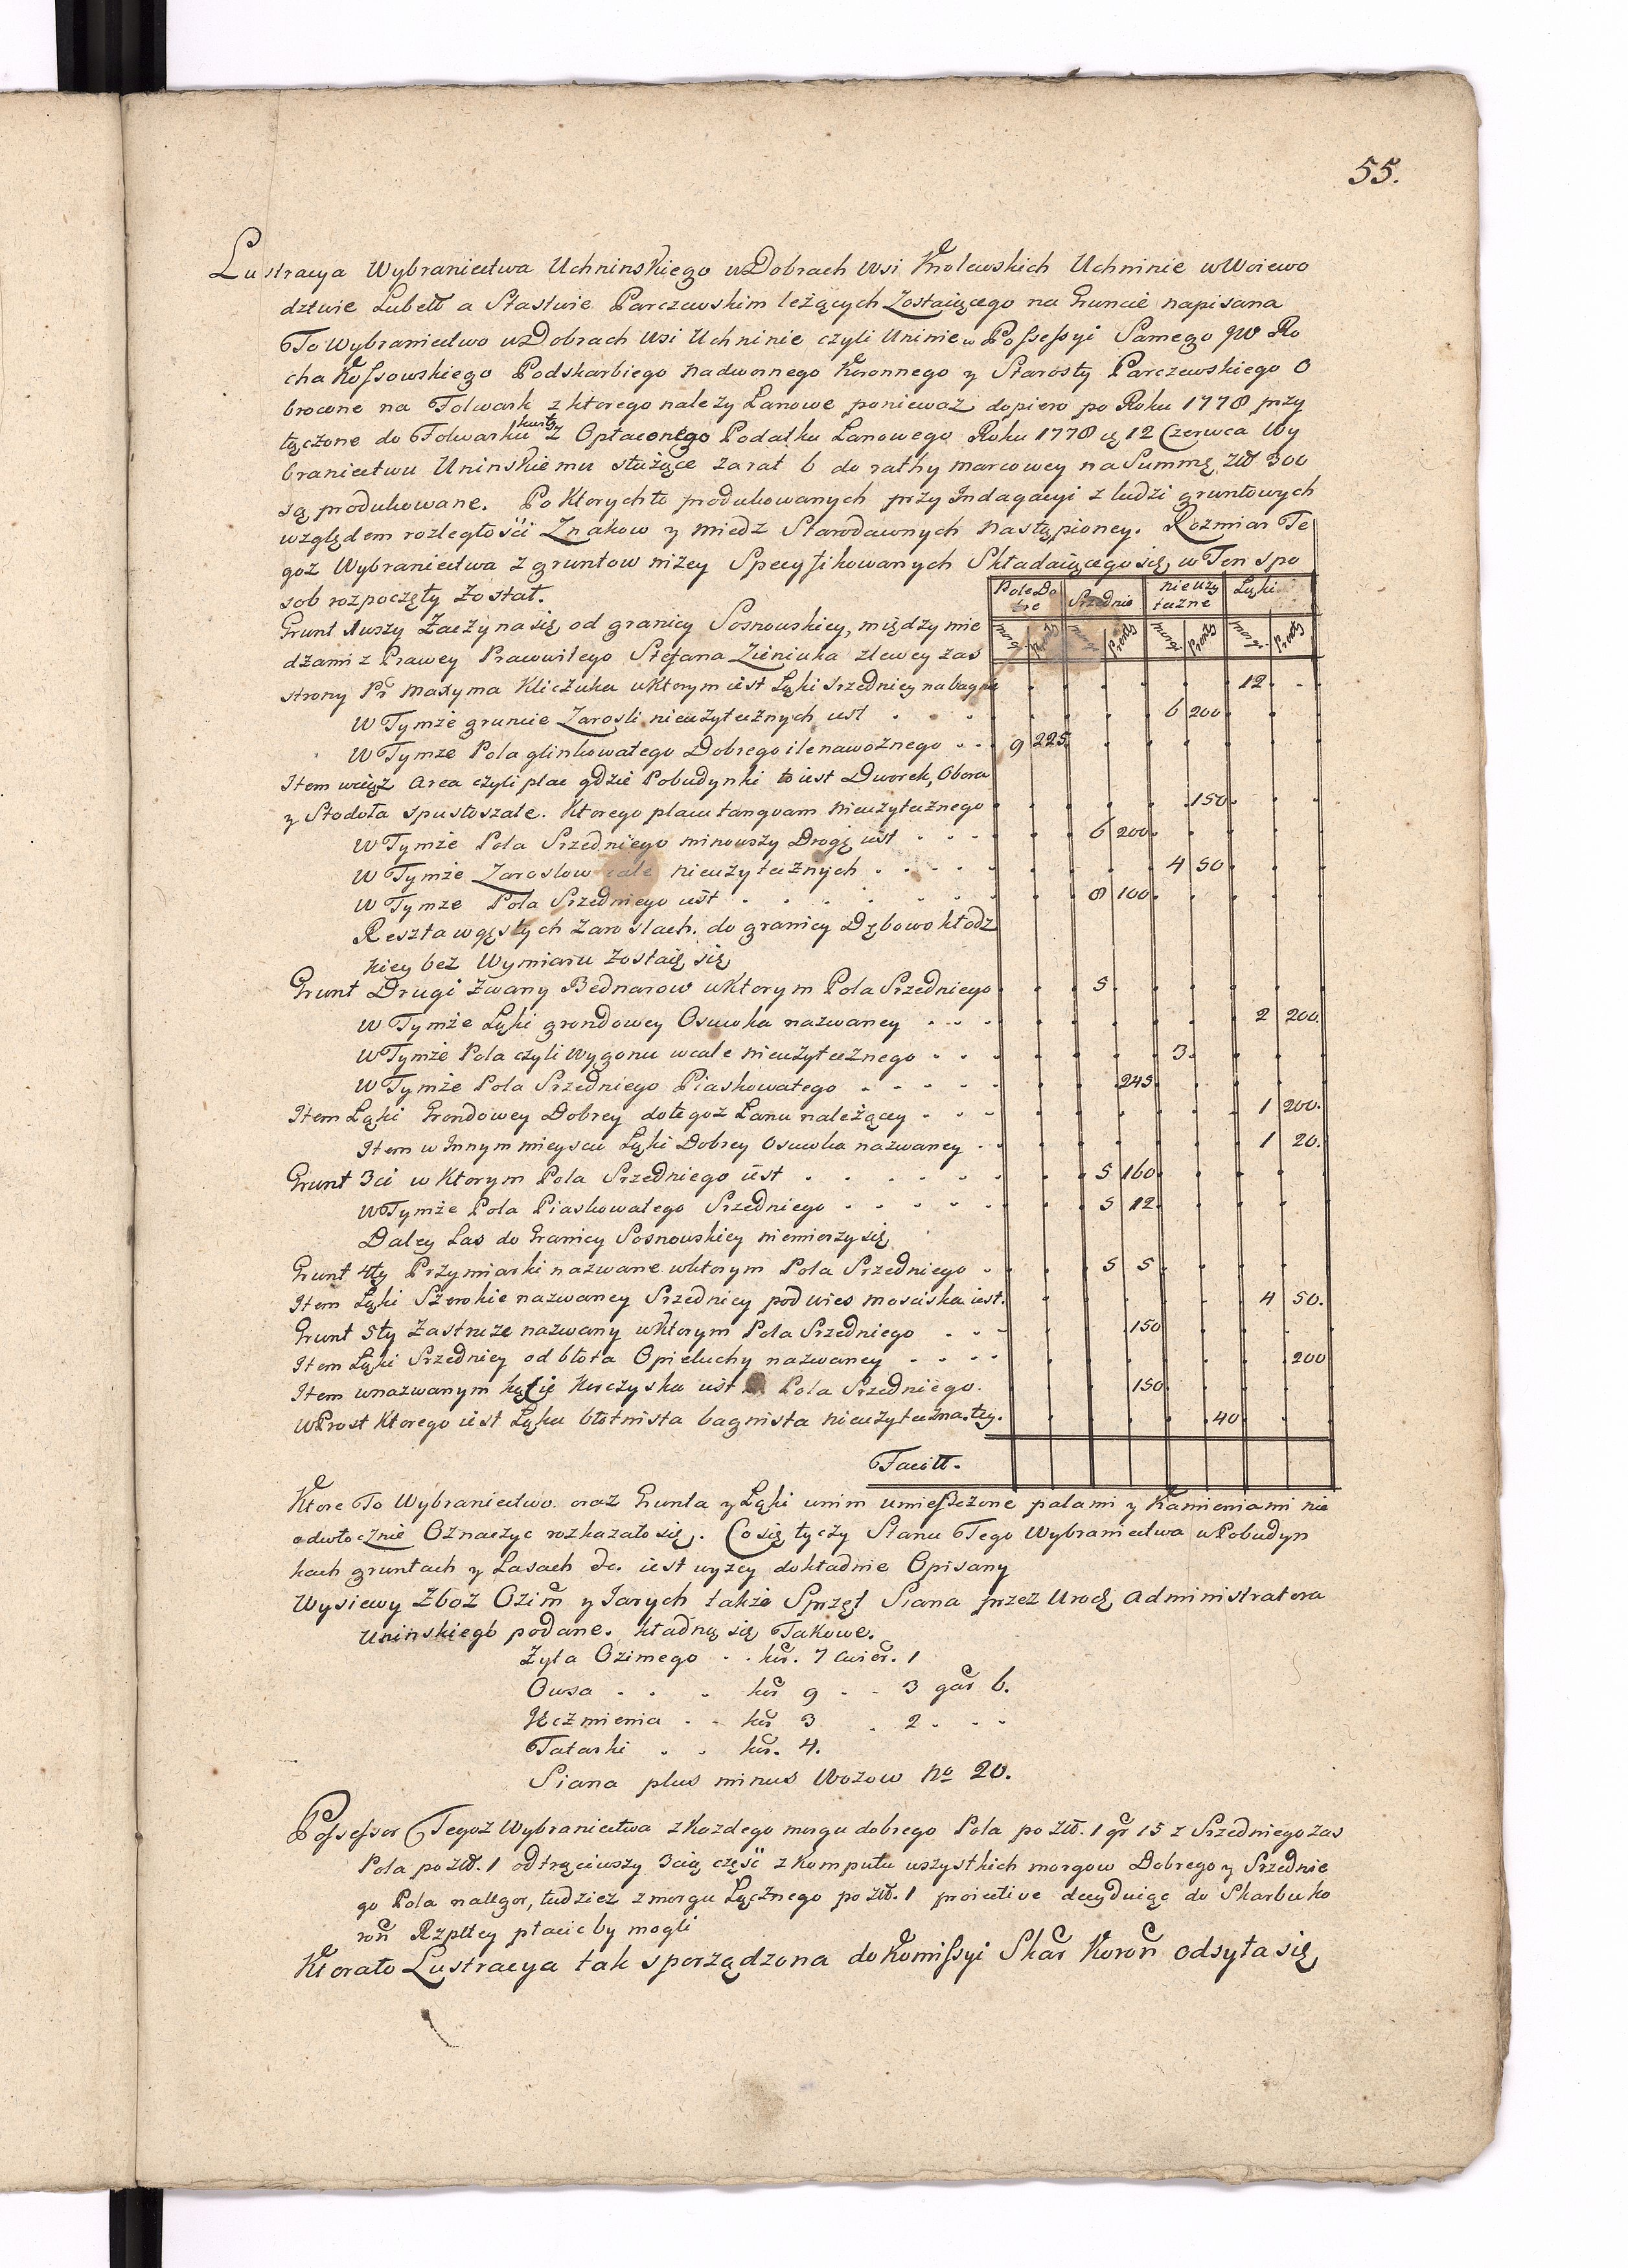 55.
Lustracya Wybraniectwa Uchninskiego w Dobrach Wsi Krolewskich Uchninie w Woiewo
dztwie Lubell a Stastwie Parczewskim leżących Zostaiącego na Gruncie napisana
To Wybraniectwo w Dobrach Wsi Uchninie czyli Uninie w Possessyi Samego JW Ro
cha Kossowskiego Podskarbiego Nadwornego Koronnego y Starosty Parczewskiego O
brocone na Folwark z ktorego należy Łanowe poniewaz dopiero po Roku 1778 przy
łączone do Folwarku kwity Z Opłaconego Podatku Łanowego Roku 1778 12 Czerwca Wy
braniectwu Uninskiemu służące za rat 6 do rathy marcowey na Summę Złł 300
są produkowane. Po Ktorych to produkowanych przy Indagacyi z ludzi gruntowych
względem rozległości Znakow y miedz Starodawnych nastąpioney. Rozmiar Te
goz Wybraniectwa z gruntow niżey Specyfikowanych Składaiącego się, w Ten spo
sob rozpoczęty został.
Pole Do
bre Srzednie nieuży
teczne Łąki
morgi Pręty morgi Pręty morgi Pręty morgi Pręty
Grunt 1wszy Zaczyna się od granicy Sosnowskiey, między mie
dzami z Prawey Prawowitego Stefana Zieniuka z lewey zas
strony Pr Maxyma Kliczuka w Ktorym iest Łąki srzedniey na bagnie 12
W Tymże gruncie Zarosli nieużytecznych iest 6 200
W Tymze Pola glinkowatego Dobrego ile nawoznego 9 225
Item wciąż Area czyli plac gdzie Pobudynki to iest Dworek, Obora
y Stodoła spustoszałe. Ktorego placu tanquam nieużytecznego 150
W Tymże Pola Srzedniego minowszy Drogę iest 6 200
W Tymże Zaroslow cale nieużytecznych 4 50
W Tymze Pola Srzedniego iest 8 100
Reszta w gęstych Zaroslach do granicy Dębowo kłodz
kiey bez Wymiaru zostaię się
Grunt Drugi Zwany Bednarow w Ktorym Pola Srzedniego 5
W Tymże Łąki grondowey Osuwka nazwaney 2 200
W Tymże Pola czyli Wygonu wcale nieużytecznego 3
W Tymże Pola Srzedniego Piaskowatego 245
Item Łąki Grondowey Dobrey do tegoz Łanu należącey 1 200
Item w Innym mieyscu Łąki Dobrey Osuwka nazwaney 1 20
Grunt 3ci w Ktorym Pola Srzedniego iest 5 160
W Tymże Pola Piaskowatego Srzedniego 5 12
Daley Las do Granicy Sosnowskiey niemierzy się
Grunt 4ty Przymiarki nazwane w ktorym Pola Srzedniego 5 5
Item Łąki Szerokie nazwaney Srzedniey pod wies Mosciska iest. 4 50
Grunt 5ty Zastrucze nazwany w Ktorym Pola Srzedniego 150
Item Łąki Srzedniey od błota Opieluchy nazwaney 200
Item w nazwanym kącie Korczysku iest Pola Srzedniego 150
W Prost Ktorego iest Łąka błotnista bagnista nieużyteczna 40
Facitt.
Ktore To Wybraniectwo oraz Grunta y Łąki w nim umieszczone palami y Kamieniami nie
odwłocznie Oznaczyc rozkazało się. Co się tyczy Stanu Tego Wybraniectwa w Pobudyn
kach gruntach y Lasach &c. iest wyzey dokładnie Opisany
Wysiewy Zboz Ozim y Jarych także Sprzęt Siana przez Urodz Administratora
Uninskiego podane. kładną się Takowe.
Żyta Ozimego kor. 7 cwier. 1
Owsa kor 9 3 gar 6.
Jęczmienia kor 3 2
Tatarki kor. 4.
Siana plus minus Wozow No 20.
Possessor Tegoz Wybraniectwa z Kazdego morgu dobrego Pola po Złł. 1 gr 15 z Srzedniego zas
Pola po Złł. 1 odtrąciwszy 3cią część z Komputu wszystkich morgow Dobrego y Srzednie
go Pola na Ugor, tudziez z morgu Łącznego po Złł. 1 proiective decyduiąc do Skarbu Ko
ron Rzpltey płacic by mogli
Ktora to Lustracya tak sporządzona do Komissyi Skar Koron odsyła się